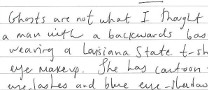 Ghosts are not what I thought
a man with a backwards bas
wearing a Laisiana State t-sh
eye makeup. She has cartoon
eye lashes and blue eye-shadow